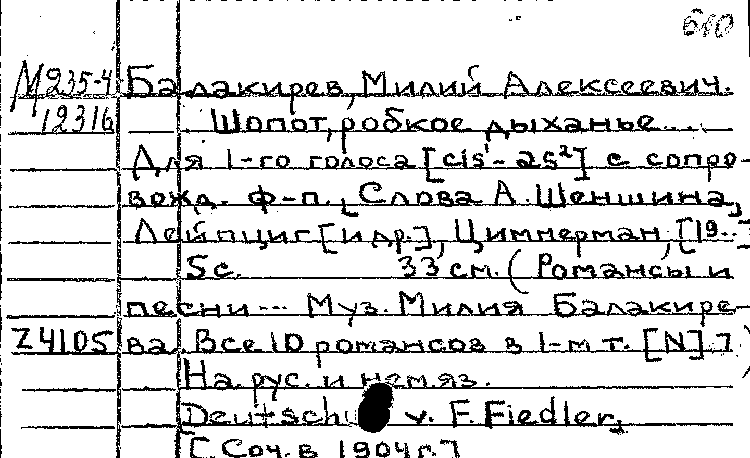 610
М 235-4 Балакирев, Милий Алексеевич.
12316 Шопот, робкое дыханье...
Для 1-го голоса [cis¹- as²] с сопро-
вожд. ф-п., Слова А. Шеншина,
Лейпциг [и др.], Циммерман, [19..]
5с. 33 см. (Романсы и
песни... Муз. Милия Балакире-
Z 4105 ва. Все 10 романсов в 1-м т. [N] 7)
На рус. и нем. яз.
v. F. Fiedler,
[С. Соч. в 1904 г.]